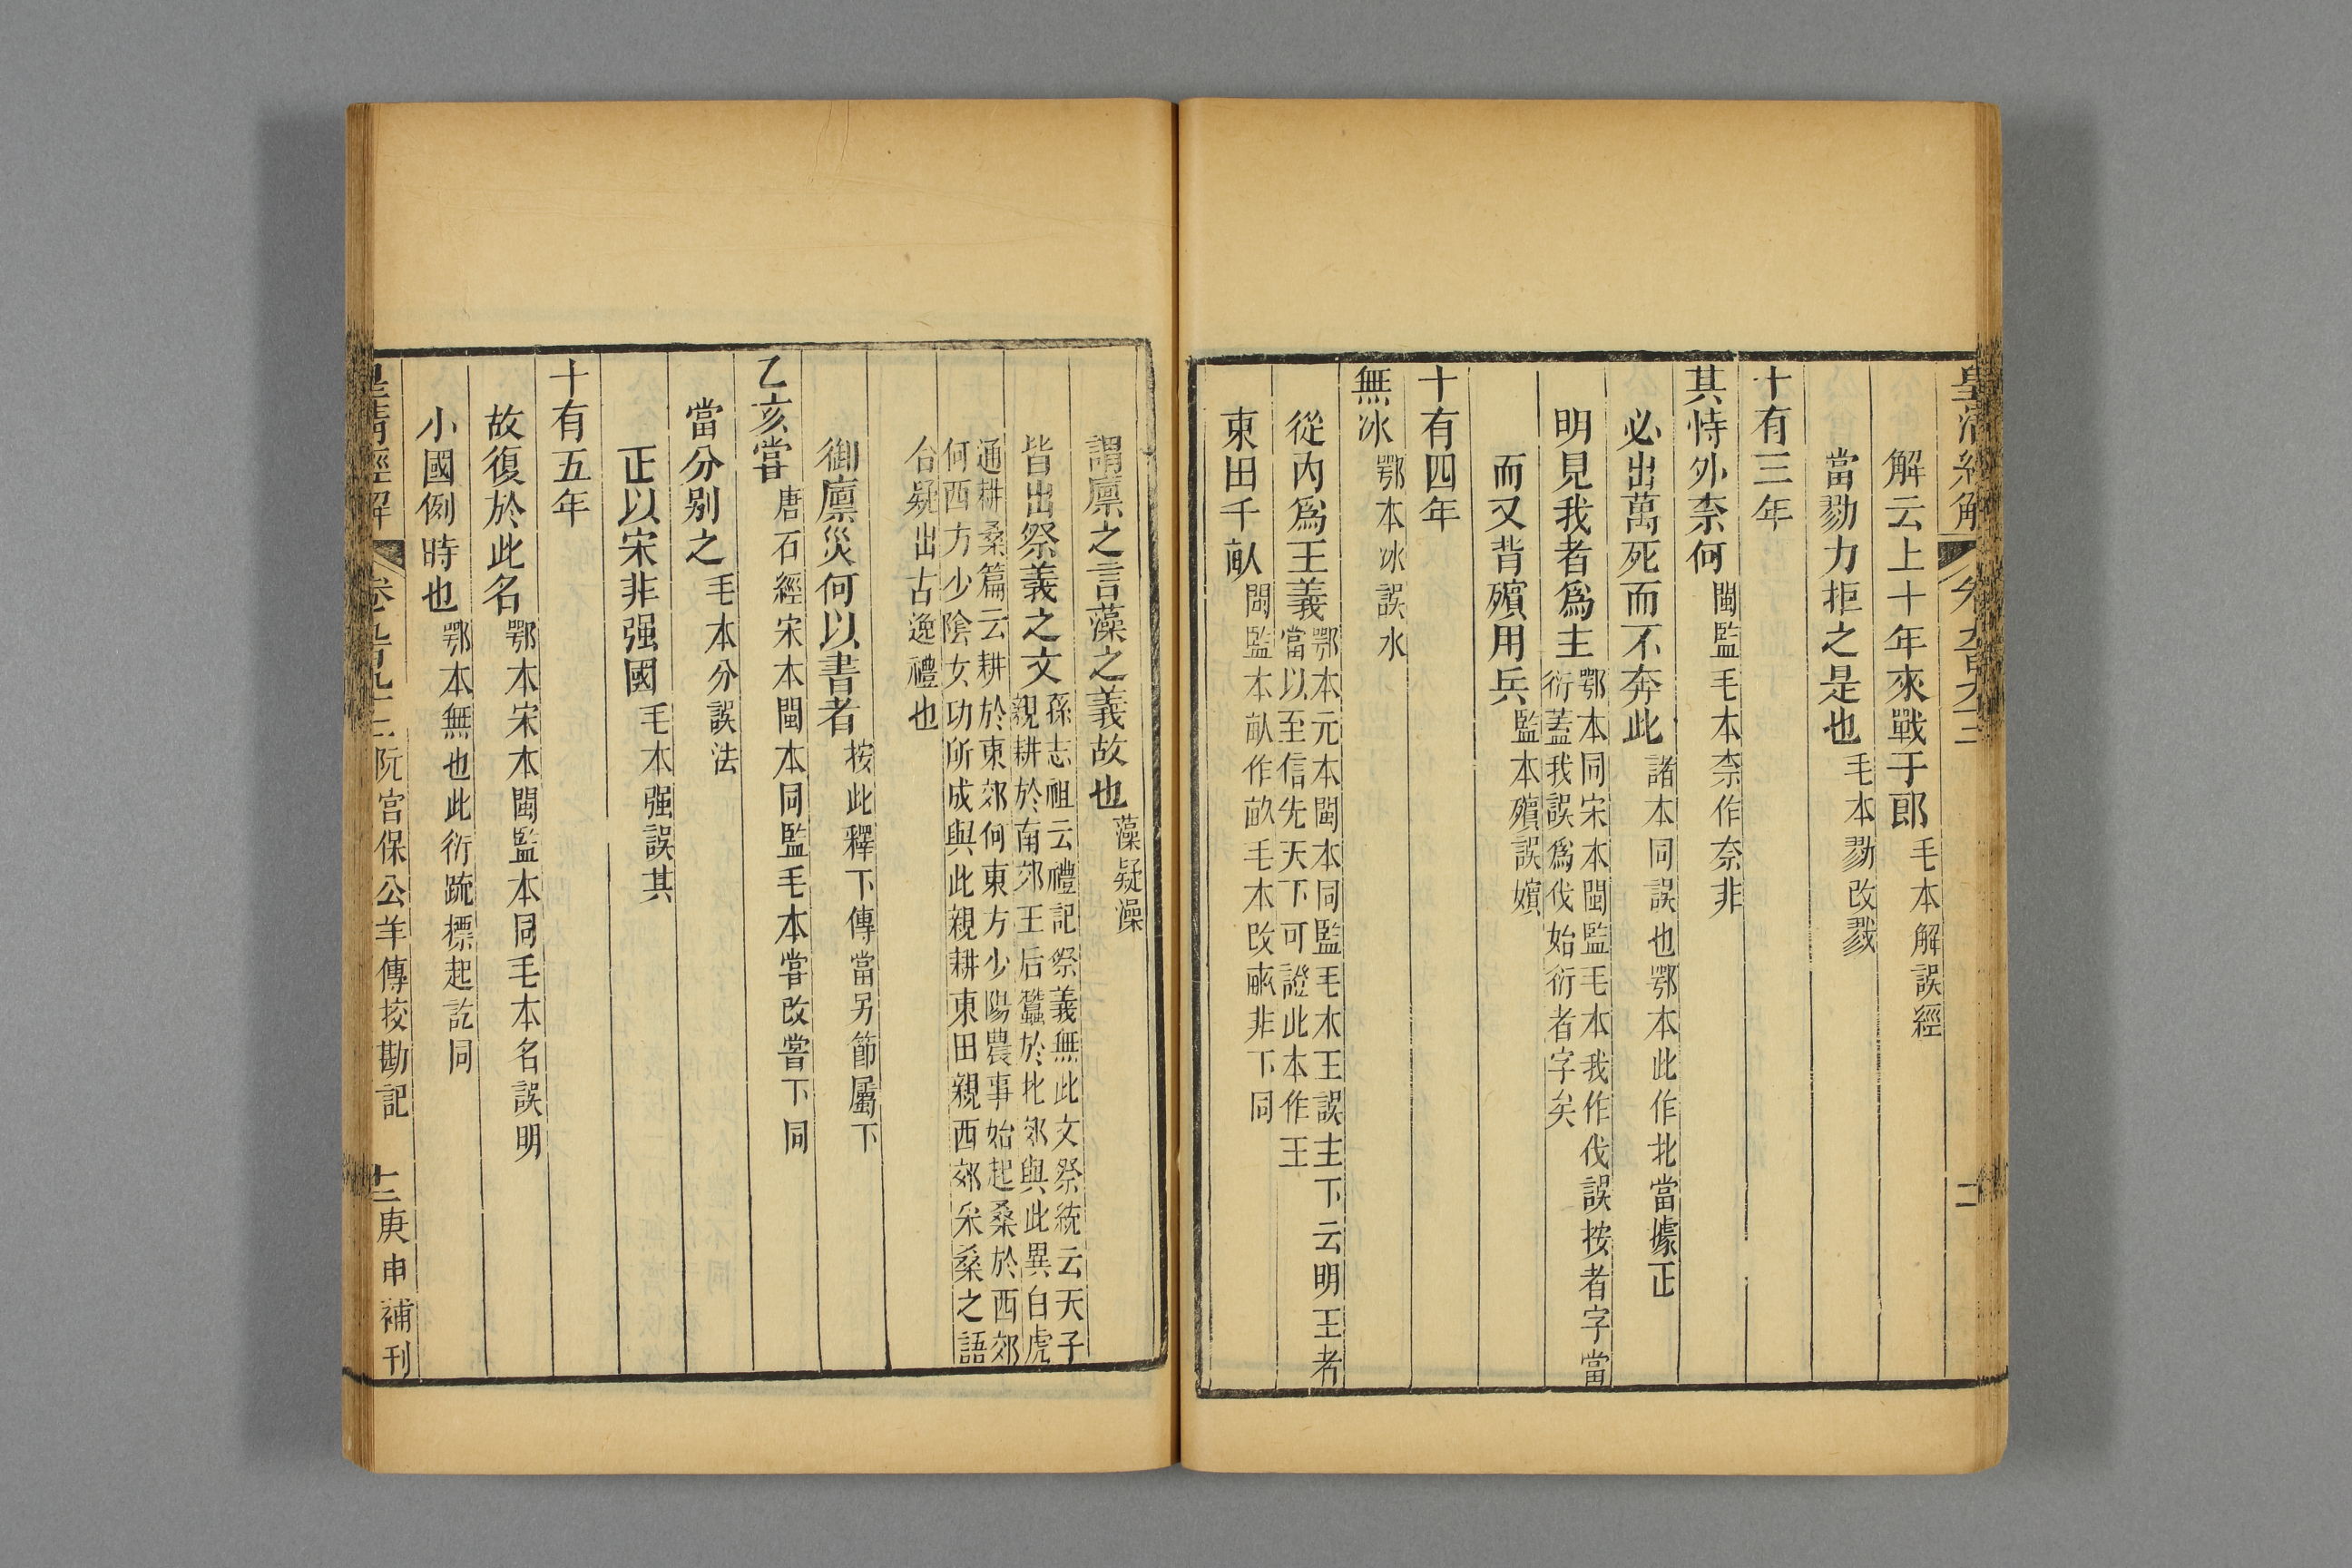 皇清經解 卷九百九十三 二
解云上十年來戰于郎毛本解誤經
當勠力拒之是也毛本勠改戮
十有三年
其恃外柰何閩監毛本柰作奈非
必出萬死而不奔此諸本同誤也鄂本此作北當據正
明見我者爲主鄂本同宋本閩監毛本我作伐誤按者字當
衍蓋我誤爲伐始衍者字矣
而又背殯用兵監本殯誤嬪
十有四年
無冰鄂本冰誤水
從內爲王義鄂本元本閩本同監毛本王誤主下云明王者
當以至信先天下可證此本作王
東田千畝閩監本畝作畞毛本改畮非下同
謂廪之言藻之義故也藻疑澡
皆出祭義之文孫志祖云禮記祭義無此文祭統云天子
親耕於南郊王后蠶於北郊與此異白虎
通耕桑篇云耕於東郊何東方少陽農事始起桑於西郊
何西方少陰女功所成與此親耕東田親西郊采桑之語
合疑出古逸禮也
御廪災何以書者按此釋下傳當另節屬下
乙亥嘗唐石經宋本閩本同監毛本嘗改甞下同
當分別之毛本分誤法
正以宋非强國毛本强誤其
十有五年
故復於此名鄂本宋本閩監本同毛本名誤明
小國例時也鄂本無也此衍䟽標起訖同
皇清經解 卷九百九十三阮宮保公羊傳挍勘記 十二庚申補刊